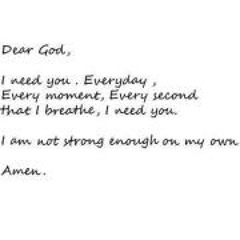 Dear God,
I need you . Everyday ,
Every moment, Every second
that I breathe, I need you.
I am not strong enough on my own
Amen.